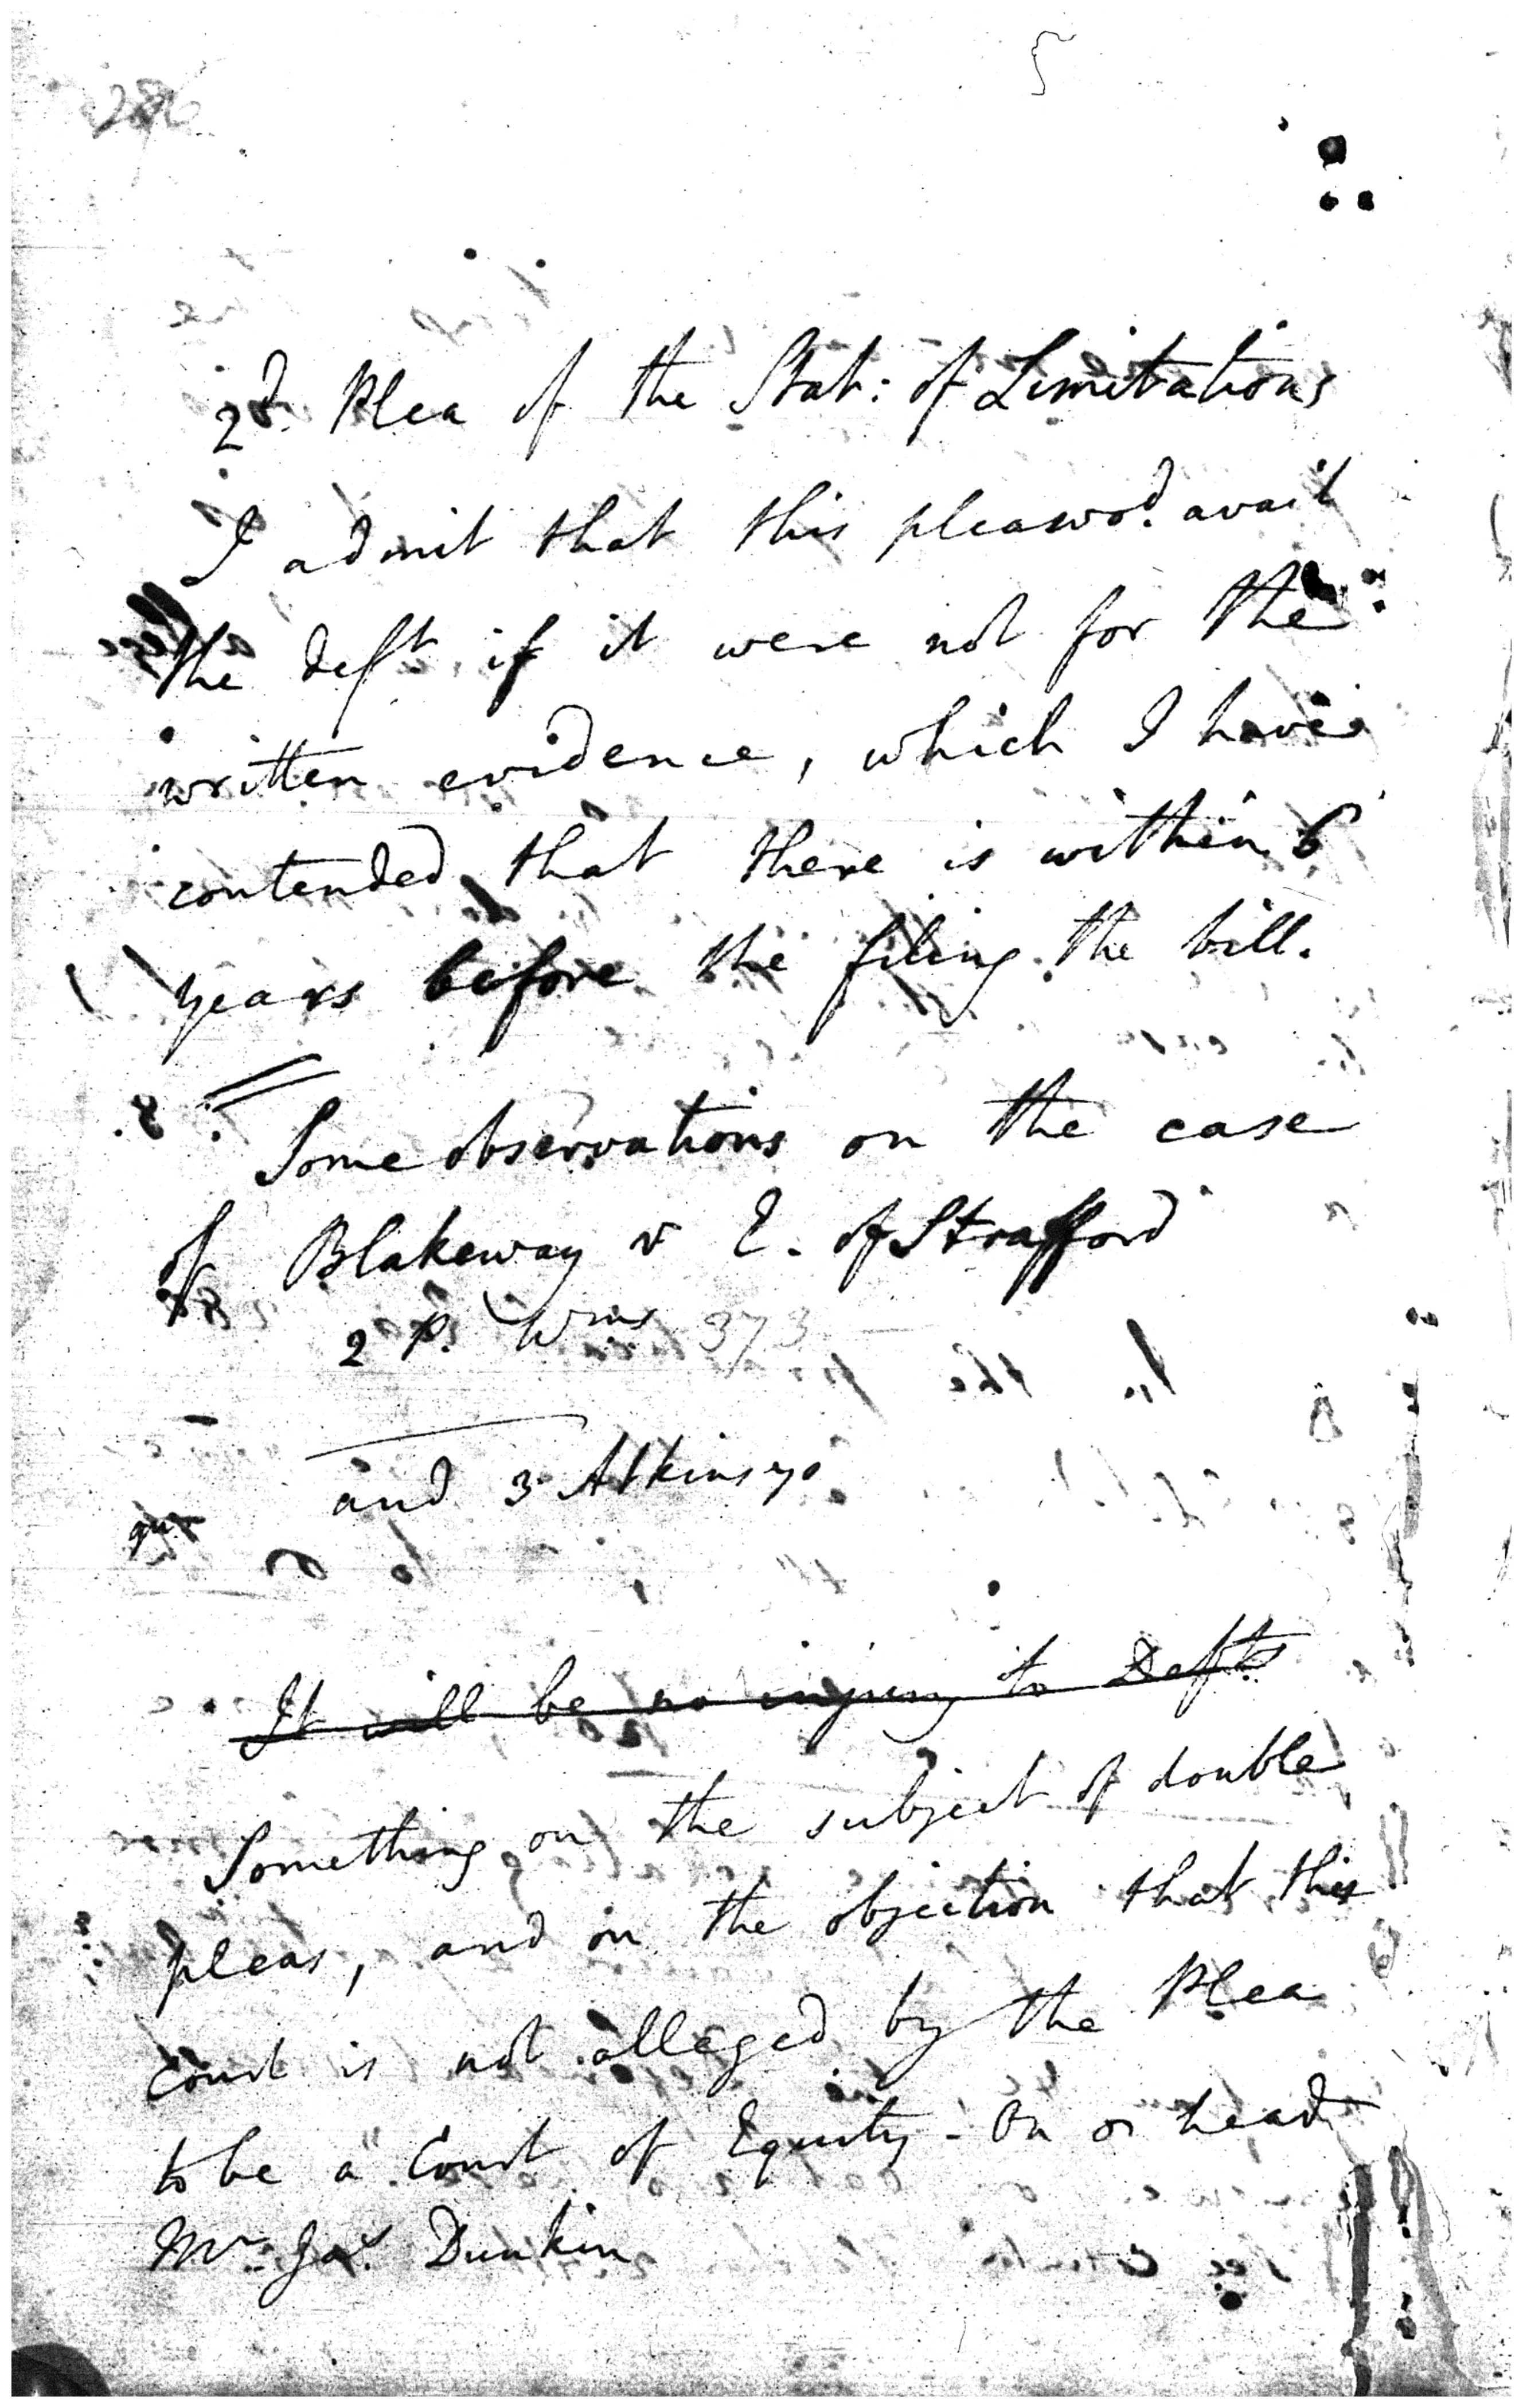 2d. Plea of the Stat: of Limitations
I admit that this plea wod. avail
the deft. if it were not for the
written evidence, which I have
contended that there is within 6
years before the filing the bill.
Some observations on the case
of Blakeway v E. of Strafford
2 P. Wms 373
and 3 Atkins 70
qu
It will be no injury to Defts
Something on the subject of double
pleas, and on the objection that this
Court is not alleged by the Plea
to be a Court of Equity - On or head
Mr. Jas. Dunkin